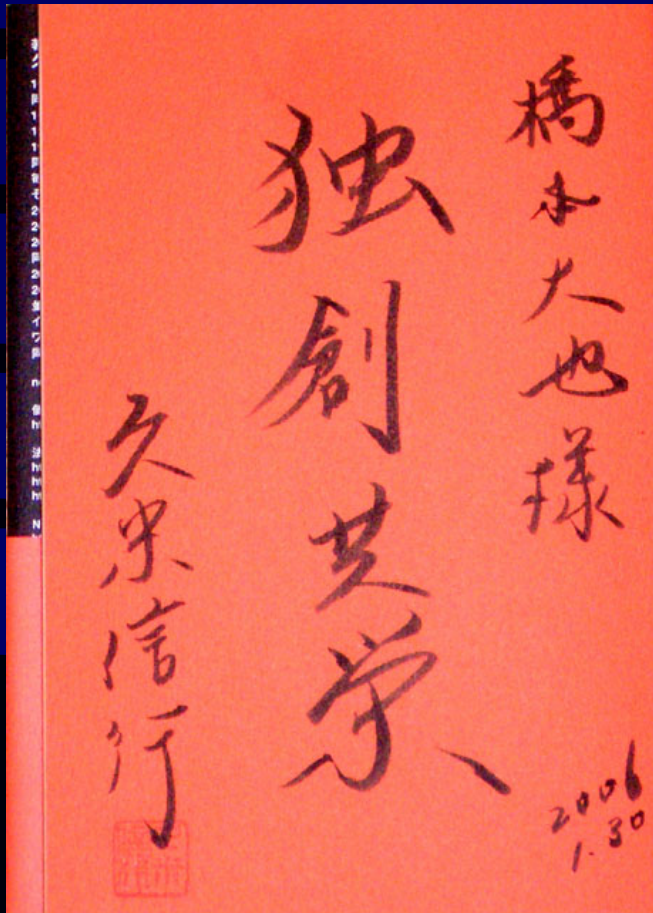 橋本大也様
独創共栄
久米信行
2006
1.30